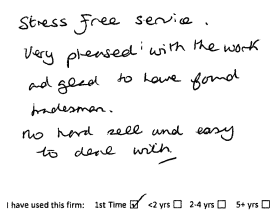 Stress free service.
Very pleased with the work
and glad to have found
tradesman.
no hard sell and easy
to deal with.
I have used this firm: 1st Time ☑ <2 yrs ☐ 2-4 yrs ☐ 5+ yrs ☐